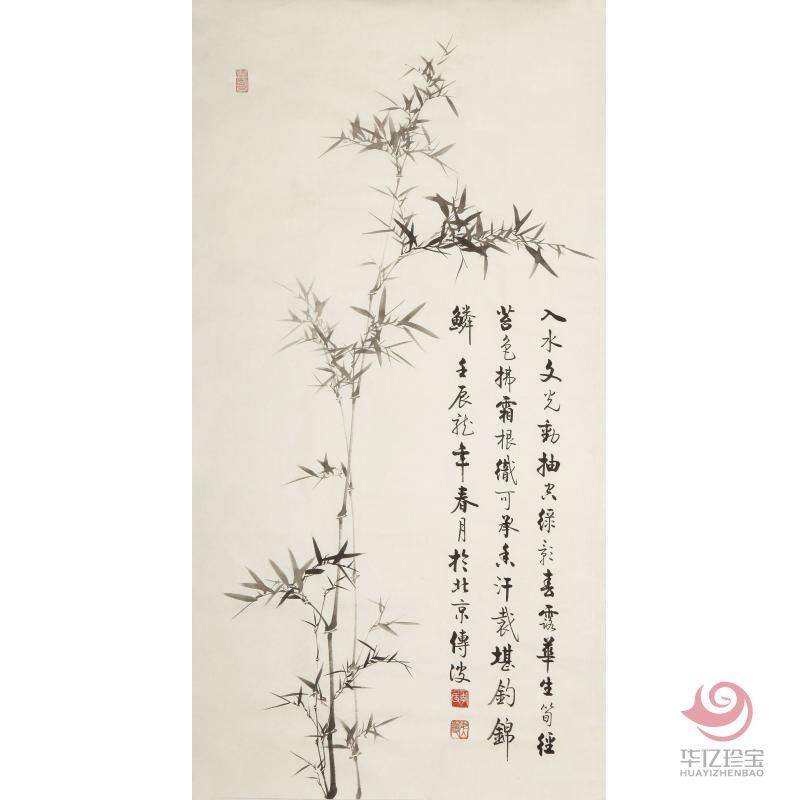 入水文光動抽空綠影春露華生筍徑
苔色拂霜根織可承香汗裁堪釣錦
鱗 壬辰龍年春月於北京傅波
华亿珍宝
HUAYIZHENBAO